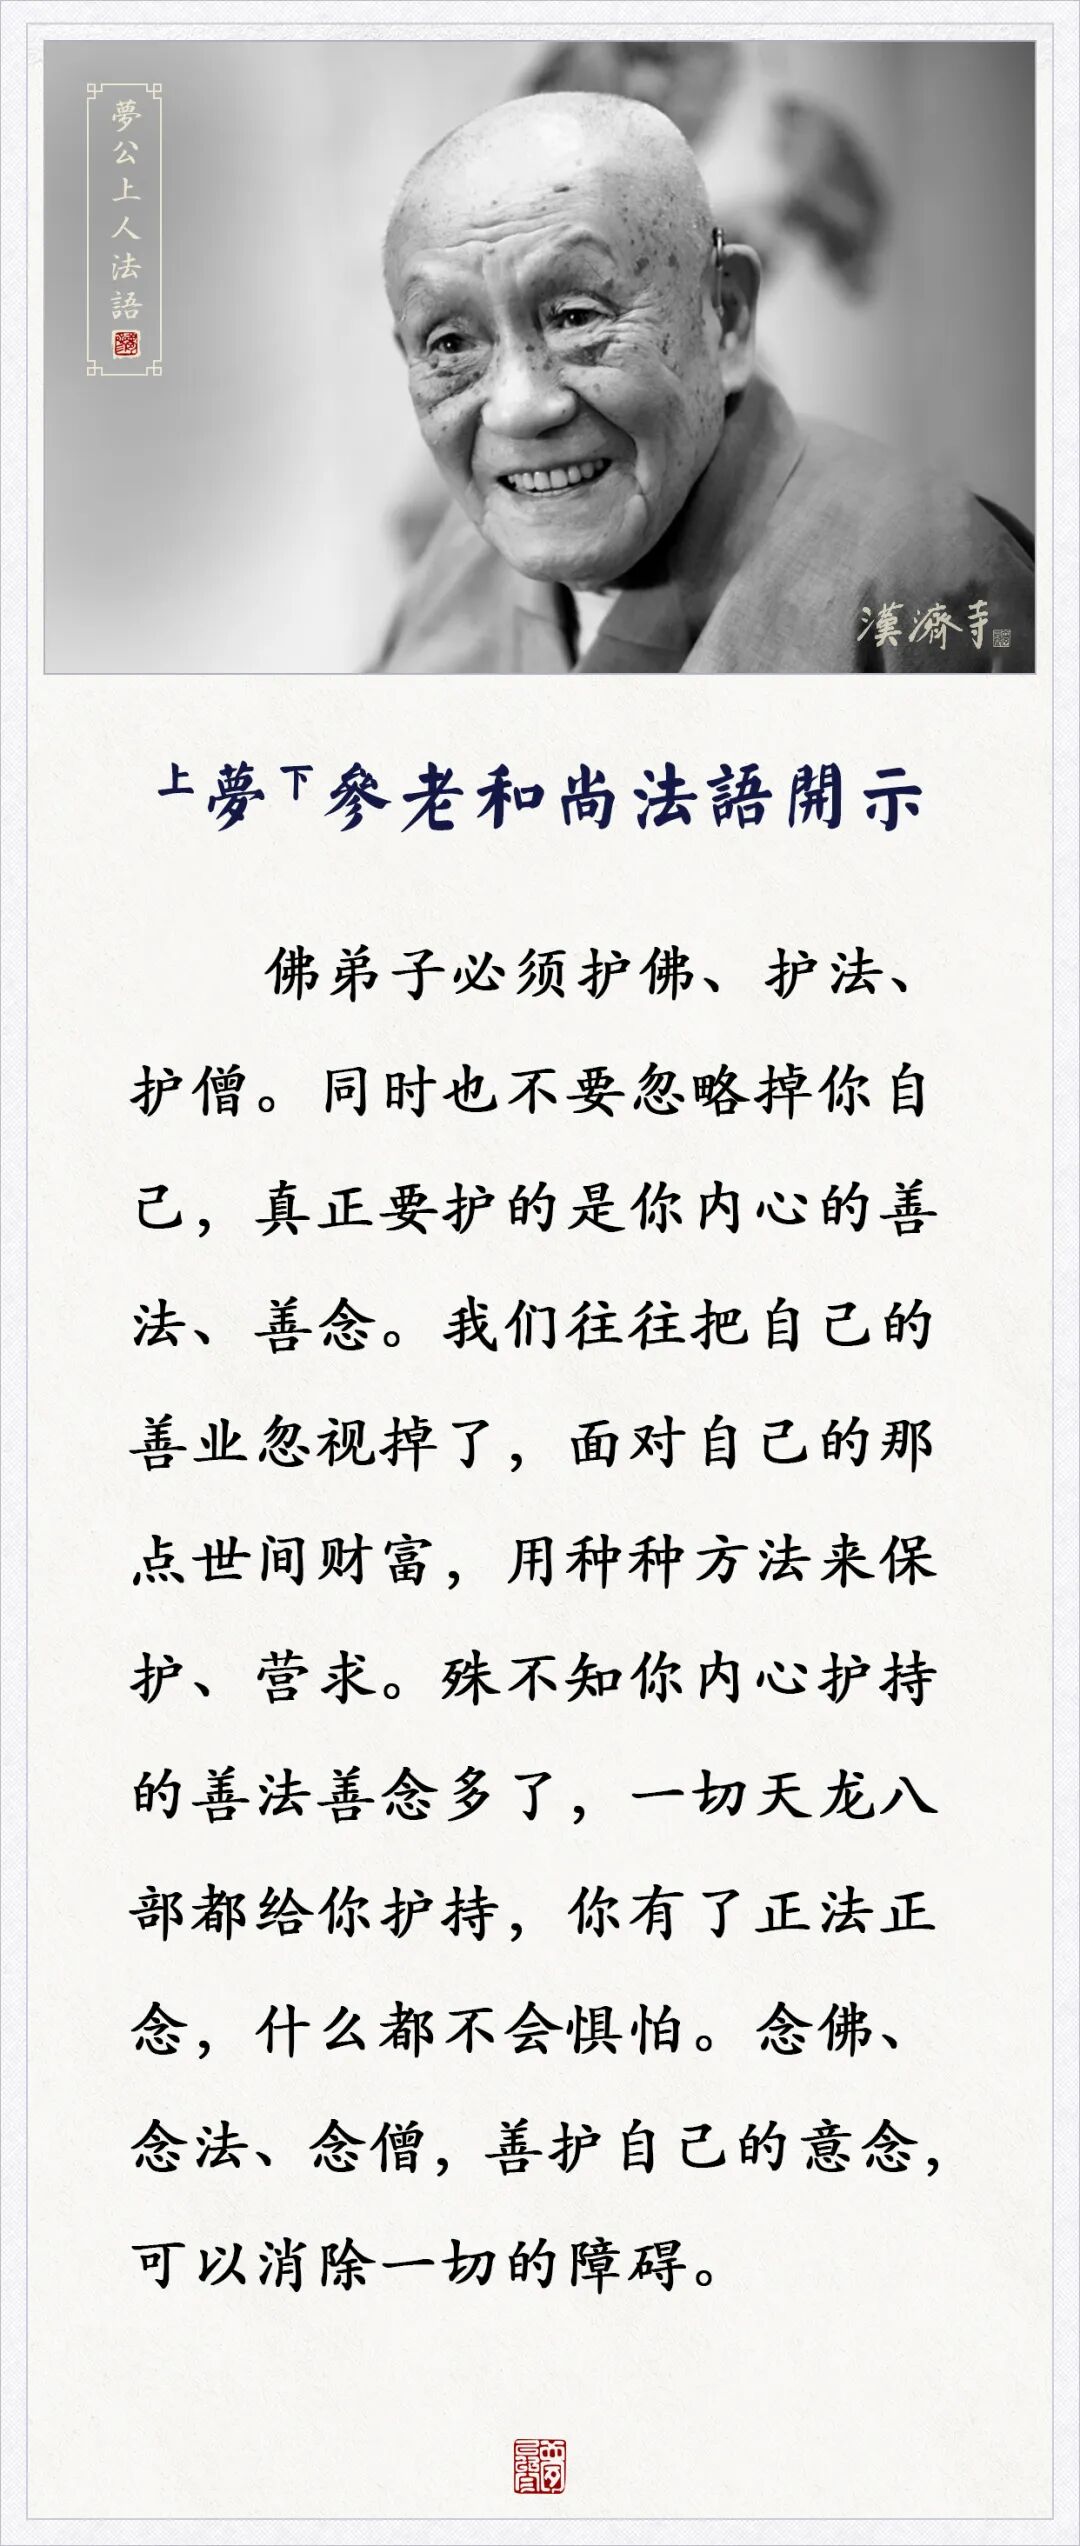 夢公上人法語
漢濟寺
上夢下參老和尚法語開示
佛弟子必须护佛、护法、
护僧。同时也不要忽略掉你自
己，真正要护的是你内心的善
法、善念。我们往往把自己的
善业忽视掉了，面对自己的那
点世间财富，用种种方法来保
护、营求。殊不知你内心护持
的善法善念多了，一切天龙八
部都给你护持，你有了正法正
念，什么都不会惧怕。念佛、
念法、念僧，善护自己的意念，
可以消除一切的障碍。